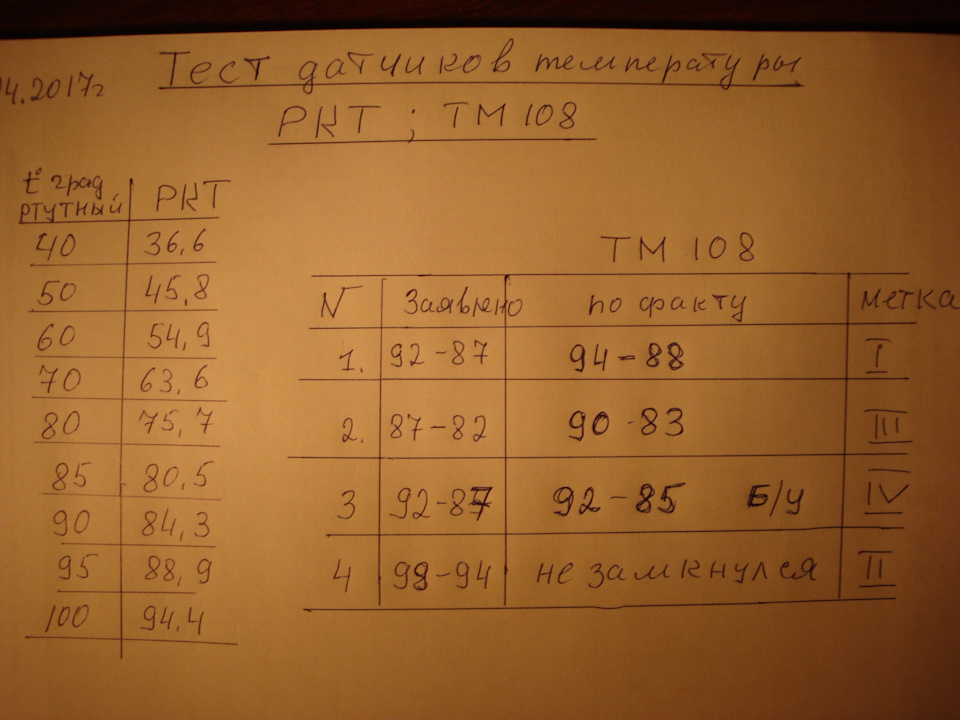 04.2017г Тест датчиков температуры
РКТ ; ТМ 108
t° град ртутный РКТ
40 36,6
50 45,8
60 54,9
70 63,6
80 75,7
85 80,5
90 84,3
95 88,9
100 94,4
ТМ 108
N Заявлено по факту метка
1. 92-87 94-88 I
2. 87-82 90-83 III
3 92-87 92-85 Б/у IV
4 98-94 не замкнулся II